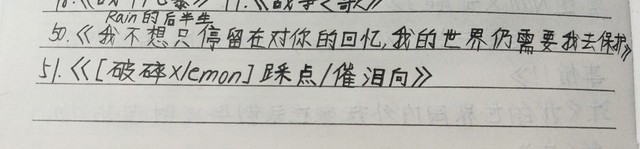 Rain的后半生
50.《我不想只停留在对你的回忆,我的世界仍需要我去保护》
51.《[破碎x/emon]踩点/催泪向》